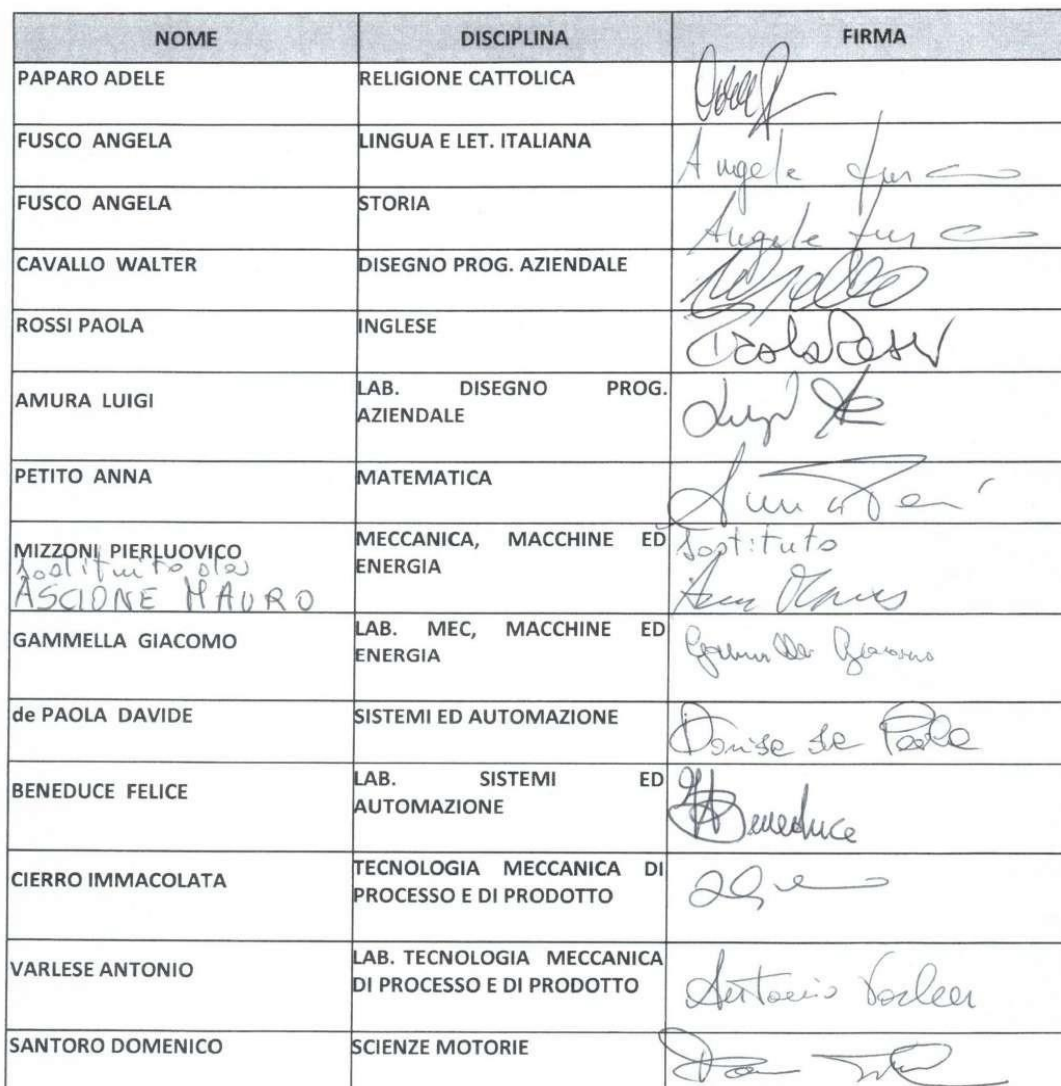 NOME DISCIPLINA FIRMA
PAPARO ADELE RELIGIONE CATTOLICA
FUSCO ANGELA LINGUA E LET. ITALIANA Angela Fusco
FUSCO ANGELA STORIA Angela Fusco
CAVALLO WALTER DISEGNO PROG. AZIENDALE
ROSSI PAOLA INGLESE Paola Rossi
AMURA LUIGI LAB. DISEGNO PROG.
AZIENDALE Luigi
PETITO ANNA MATEMATICA Anna
MIZZONI PIERLUOVICO MECCANICA, MACCHINE ED Sostituto
sostituito da ENERGIA
ASCIONE MAURO
GAMMELLA GIACOMO LAB. MEC, MACCHINE ED Gammella Giacomo
ENERGIA
de PAOLA DAVIDE SISTEMI ED AUTOMAZIONE Davide de Paola
BENEDUCE FELICE LAB. SISTEMI ED
AUTOMAZIONE Beneduce
CIERRO IMMACOLATA TECNOLOGIA MECCANICA DI
PROCESSO E DI PRODOTTO
VARLESE ANTONIO LAB. TECNOLOGIA MECCANICA
DI PROCESSO E DI PRODOTTO Antonio Varlese
SANTORO DOMENICO SCIENZE MOTORIE